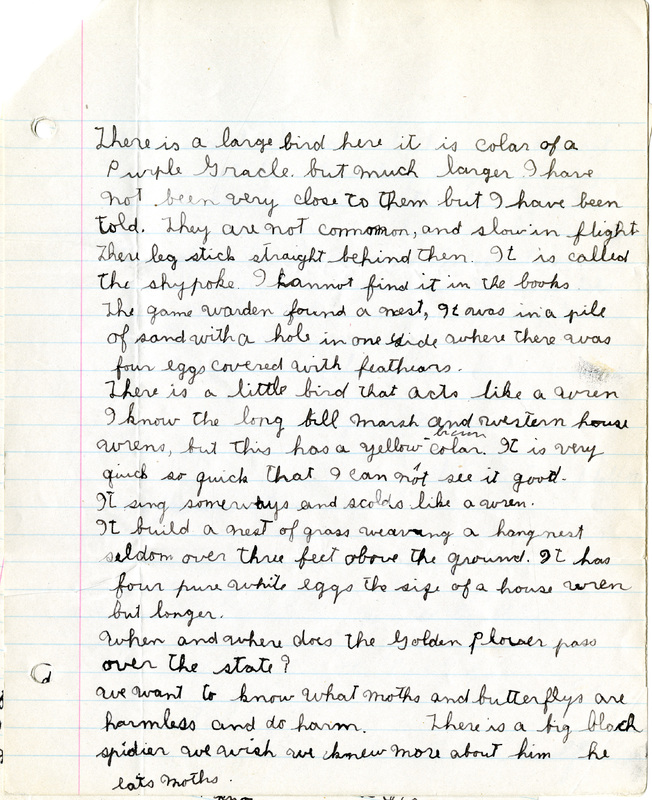 There is a large bird here it is colar of a
Purple Gracle. but much larger I have
not been very close to them but I have been
told. They are not common, and slow in flight
There leg stick straight behind then. It is called
the shypoke. I kannot find it in the books
The game warden found a nest, It was in a pile
of sand with a hole in one side where there was
four eggs covered with feathears.
There is a little bird that acts like a wren
I know the long bill marsh and western house
wrens, but this has a yellow-brown colar. It is very
quick so quick that I can not see it good.
It sing somerways and scolds like a wren.
It build a nest of grass weaving a hang nest
seldom over three feet above the ground. It has
four pure white eggs the size of a house wren
but longer.
When and where does the Golden Plower pass
over the state?
We want to know what moths and butterflys are
harmless and do harm. There is a big black
spidier we wish we knew more about him he
eats moths.